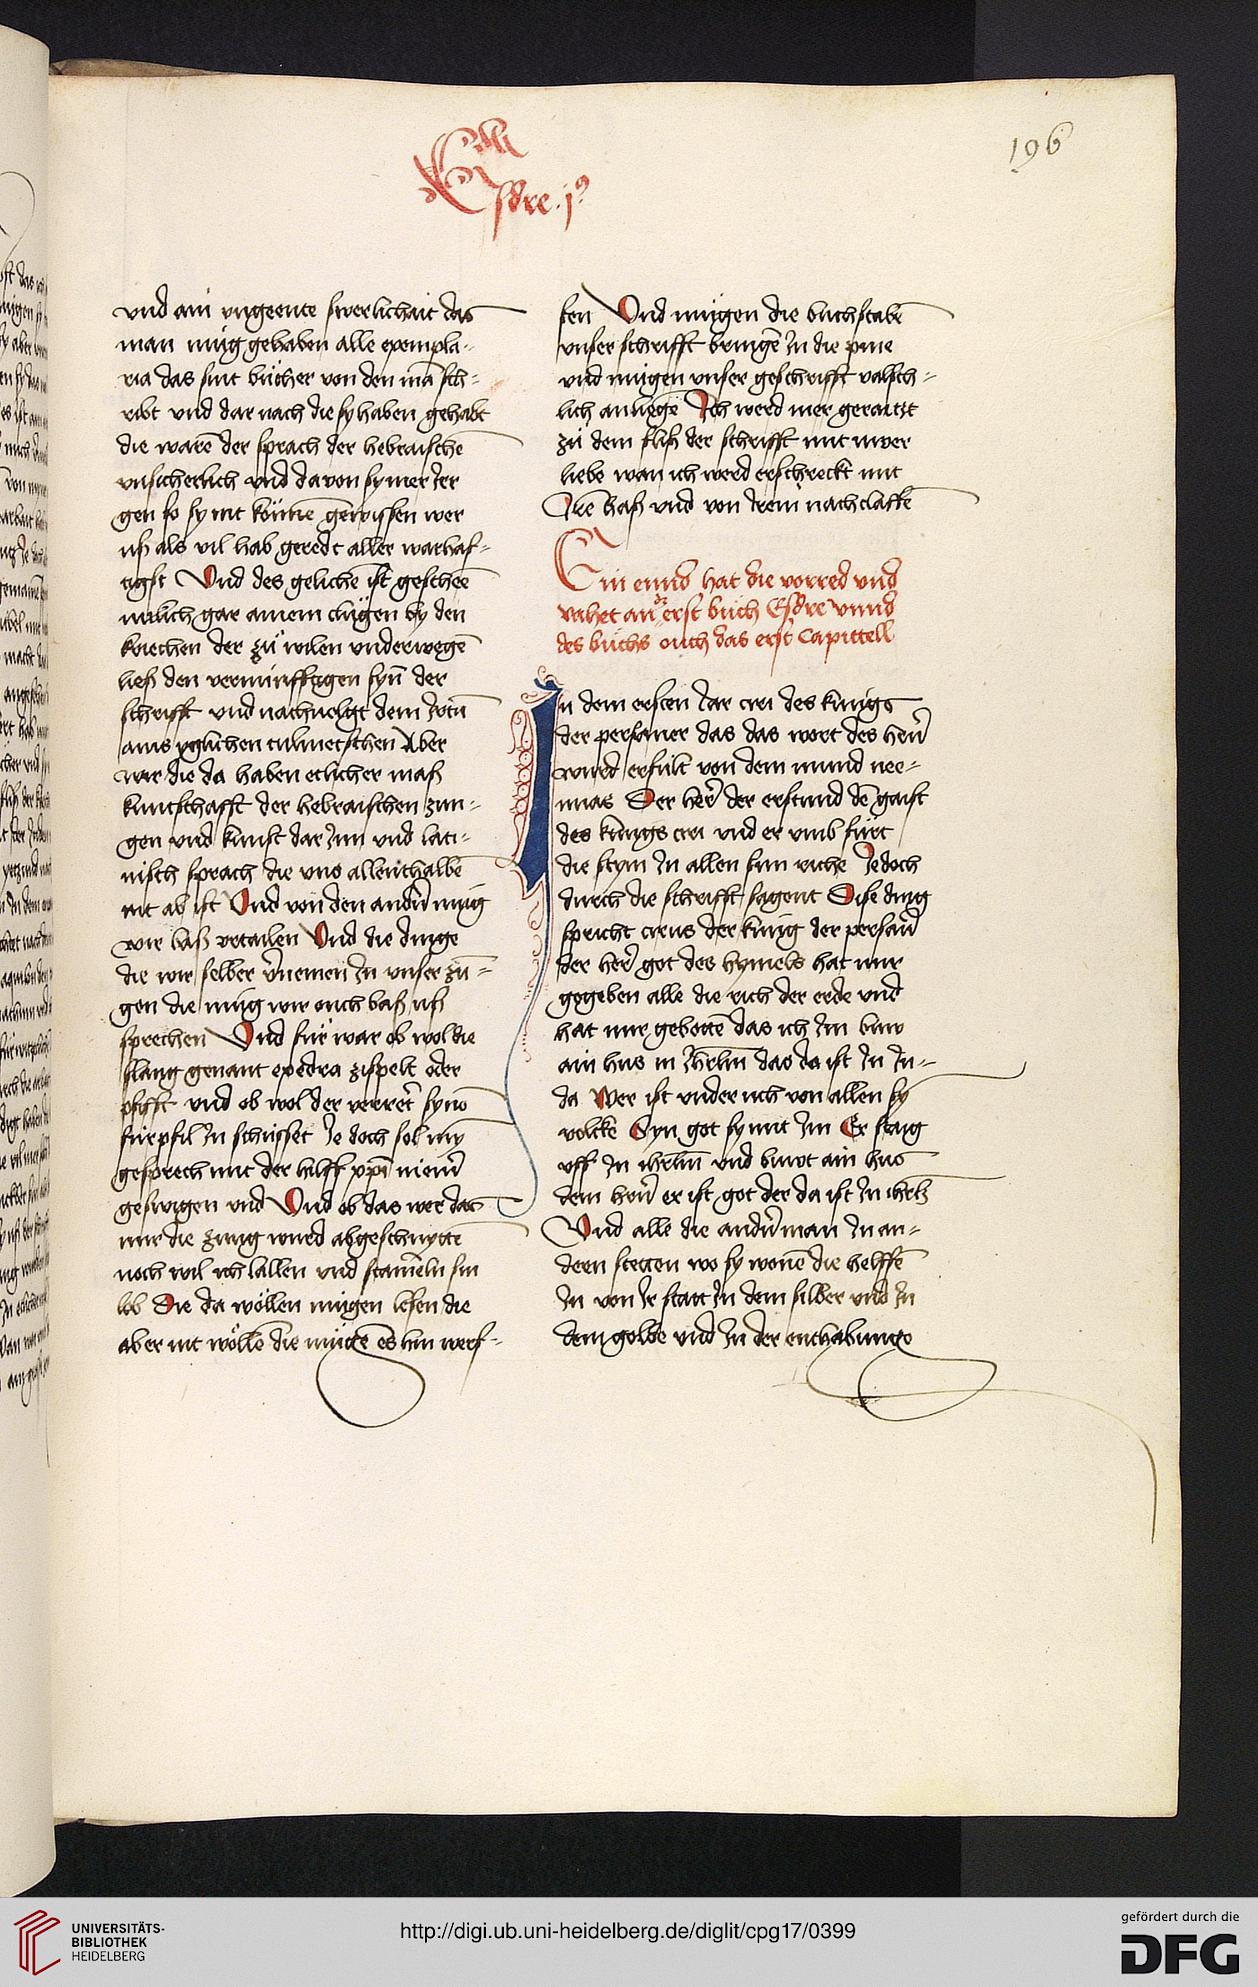 196
Esdre · j⁹
vnd ain vngeente swerlichait das
man müg gehaben alle exempla-
ria das sint bücher von den mā sch-
ribt vnd dar nach die sy haben gehabt
die warē der sprach der hebraischē
vnsicherlich vnd da von sy mer Jer
gen so sy nit könnē gewissen wer
uß als vil hab geredt aller warhaf-
tigst Vnd des gelichē ist geschēē
gar ainem clügen by den
kriechen der zü wilen vnderwegē
ließ den vernünfftigen syn̄ der
schrifft vnd nachuolgt dem
ains yglichen tulmetschen Aber
wir die da haben etlicher maß
kuntschafft der hebraischen zun-
gen vnd kunst dar Jnn vnd lati-
nisch sprach die vns allenthalbē
nit ab ist Vnd von den andn̄ müg
wir baß vrtailen Vnd die dinge
die wir selber v̄nemen Jn vnser zū-
gen die müg wir ouch baß uß
sprechen Vnd für war ob wol die
slang genant expedra zispelt oder
pfifft vnd ob wol der verret̄
für pfil Jn schusset Je doch sol my
gesprech mit der hilff xpi niem̄
geswigen vnd Vnd ob das wer das
mir die zung wurd abgeschnyttē
noch wil ich lallen vnd stamēln sin
lob Die da wöllen mügen lesen die
aber nit wöllē die mügē es hin werf-
fen Vnd mügen die buchstabē
vnser schrifft bringē Jn die pine
vnd mügen vnser geschrifft valsch-
lich anliegē Ich werd mer geraitzt
zü dem fliß der schrifft mit uwer
liebe wan ich werd erschreckt mit
Irē haß vnd von Irem nachclaffē
Ein ennd hat die vorred vnd
vahet an dz erst büch Esdre vnnd
des büchs ouch das erst Capittell
In dem ersten Jar cirei des kungs
der persaner das das wort des hern̄
wurd erfult von dem mund iere-
mias Der her̄ der erstund dē gaist
des kungs cirei vnd er vmb fürt
die stym Jn allen sim riche Je doch
durch die schrifft sagent Dise ding
spricht cirus der kung der persan̄
der her̄ got des hymels hat mir
gegeben alle die rich der erde vnd
hat mir gebottē das ich Im buw
ain hus in Jhrlm̄ das da ist Jn Ju-
da Wer ist vnder üch von allen sy
volckē Syn got sy mit Im Er staig
vff Jn ihrlm̄ vnd buwt ain hus
dem hern̄ er ist got der da ist Jn ihrlm̄
Vnd alle die andn̄ man Jn an-
dern stetten wo sy wonē die helffē
Jn von Jr statt Jn dem silber vnd Jn
dem golde vnd Jn der enthabunge
UNIVERSITÄTS-
BIBLIOTHEK
HEIDELBERG
http://digi.ub.uni-heidelberg.de/diglit/cpg17/0399
gefördert durch die
DFG